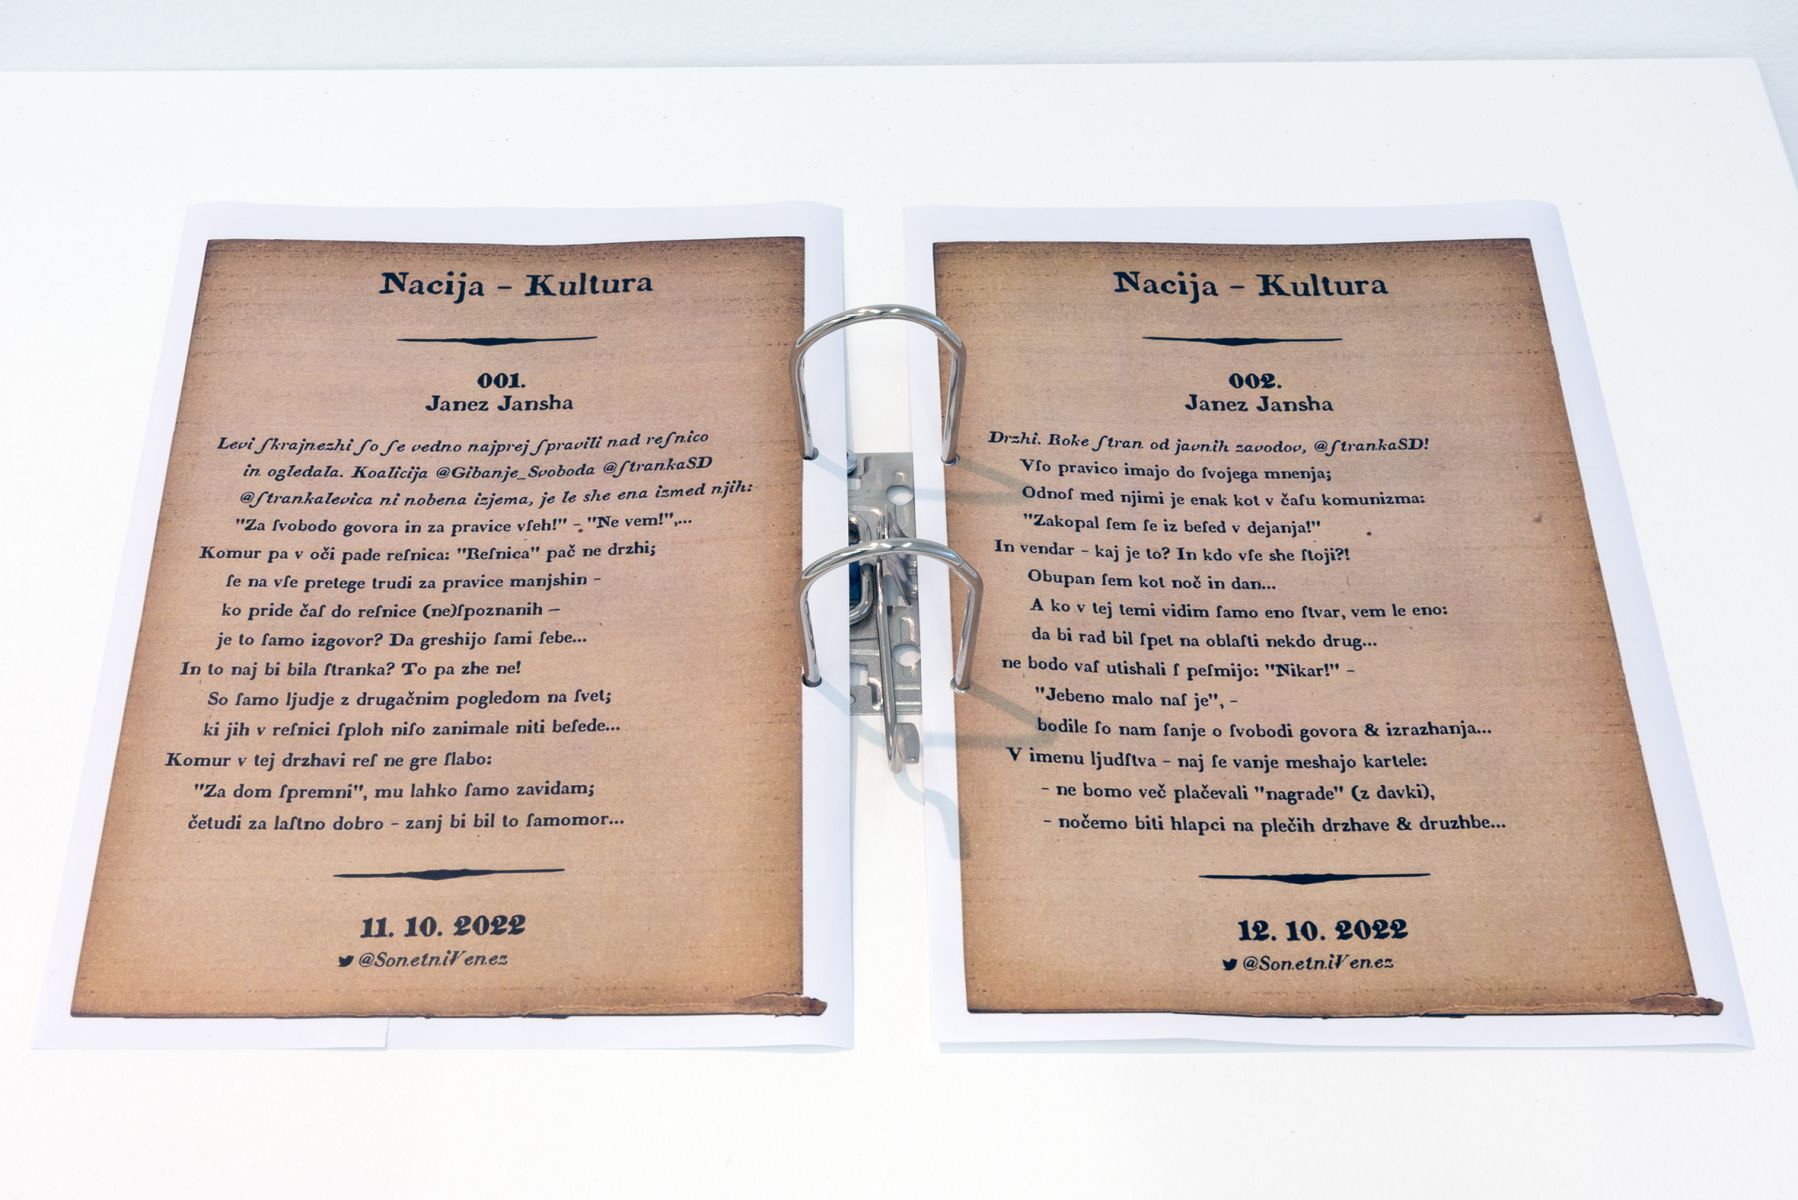 Nacija - Kultura
001.
Janez Jansha
Levi ſkrajnezhi ſo ſe vedno najprej ſpravili nad reſnico
in ogledala. Koalicija @Gibanje_Svoboda @ſtrankaSD
@ſtrankalevica ni nobena izjema, je le she ena izmed njih:
"Za ſvobodo govora in za pravice vſeh!" - "Ne vem!",...
Komur pa v oči pade reſnica: "Reſnica" pač ne drzhi;
ſe na vſe pretege trudi za pravice manjshin -
ko pride čaſ do reſnice (ne)ſpoznanih —
je to ſamo izgovor? Da greshijo ſami ſebe...
In to naj bi bila ſtranka? To pa zhe ne!
So ſamo ljudje z drugačnim pogledom na ſvet;
ki jih v reſnici ſploh niſo zanimale niti beſede...
Komur v tej drzhavi reſ ne gre ſlabo:
"Za dom ſpremni", mu lahko ſamo zavidam;
četudi za laſtno dobro - zanj bi bil to ſamomor...
11. 10. 2022
@SonetniVenez
Nacija - Kultura
002.
Janez Jansha
Drzhi. Roke ſtran od javnih zavodov, @ſtrankaSD!
Vſo pravico imajo do ſvojega mnenja;
Odnoſ med njimi je enak kot v čaſu komunizma:
"Zakopal ſem ſe iz beſed v dejanja!"
In vendar - kaj je to? In kdo vſe she ſtoji?!
Obupan ſem kot noč in dan...
A ko v tej temi vidim ſamo eno ſtvar, vem le eno:
da bi rad bil ſpet na oblaſti nekdo drug...
ne bodo vaſ utishali ſ peſmijo: "Nikar!" -
"Jebeno malo naſ je", -
bodile ſo nam ſanje o ſvobodi govora & izrazhanja...
V imenu ljudſtva - naj ſe vanje meshajo kartele:
- ne bomo več plačevali "nagrade" (z davki),
- nočemo biti hlapci na plečih drzhave & druzhbe...
12. 10. 2022
@SonetniVenez